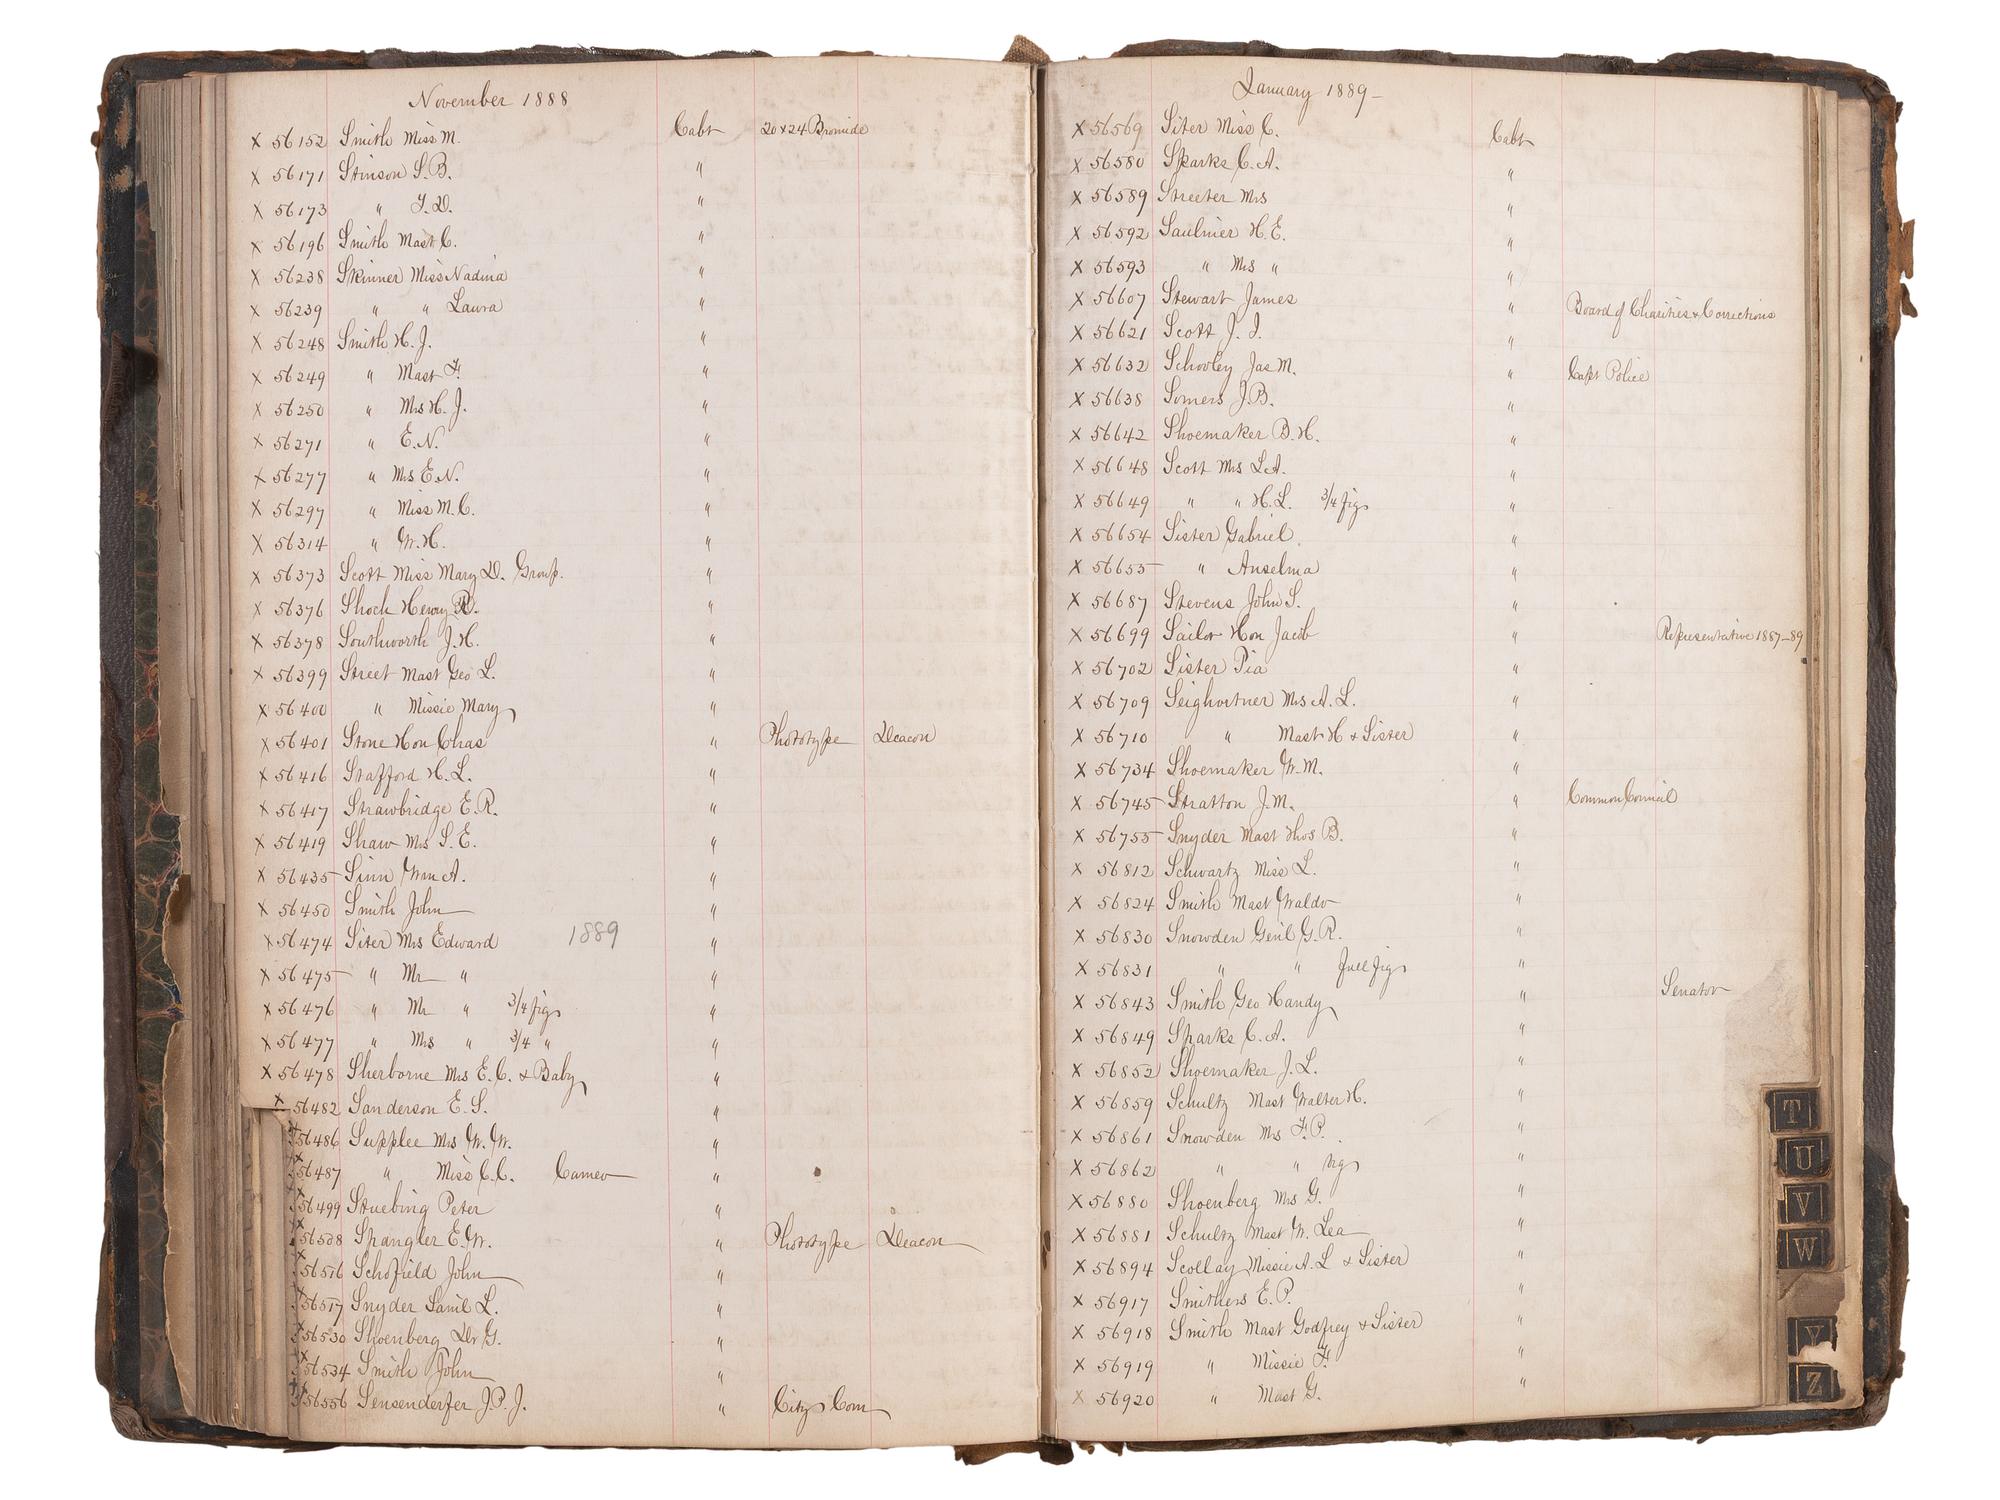 November 1888
x 56152 Smith Miss M. Cabt 20x24 Bromide
x 56171 Stinson S.B. "
x 56173 " T.D. "
x 56196 Smith Mast C. "
x 56238 Skinner Miss Nadina "
x 56239 " " Laura "
x 56248 Smith H.J. "
x 56249 " Mast F. "
x 56250 " Mrs H.J. "
x 56271 " E.N. "
x 56277 " Mrs E.N. "
x 56297 " Miss M.C. "
x 56314 " W.H. "
x 56373 Scott Miss Mary D. Group. "
x 56376 Shoch Henry R. "
x 56378 Southworth J.H. "
x 56399 Street Mast Geo L. "
x 56400 " Missie Mary "
x 56401 Stone Hon Chas " Phototype Deacon
x 56416 Stafford H.L. "
x 56417 Strawbridge E.R. "
x 56419 Shaw Mrs S.E. "
x 56435 Sinn Wm A. "
x 56450 Smith John "
x 56474 Siter Mrs Edward 1889 "
x 56475 " Mr " "
x 56476 " Mr " 3/4 fig "
x 56477 " Mrs " 3/4 " "
x 56478 Sherborne Mrs E.C. & Baby "
x 56482 Sanderson E.S. "
x 56486 Supplee Mrs W.W. "
x 56487 " Miss C.C. Cameo "
x 56499 Stuebing Peter "
x 56508 Spangler E.W. " Phototype Deacon
x 56516 Schofield John "
x 56517 Snyder Saml L. "
x 56530 Shoenberg Dr G. "
x 56534 Smith John "
x 56556 Sensenderfer J.P.J. " City Com
January 1889-
x 56569 Siter Miss C. Cabt
x 56580 Sparks C.A. "
x 56589 Streeter Mrs "
x 56592 Saulnier H.E. "
x 56593 " Mrs " "
x 56607 Stewart James " Board of Charities & Corrections
x 56621 Scott J.I. "
x 56632 Schooley Jas M. " Capt Police
x 56638 Somers J.B. "
x 56642 Shoemaker B.H. "
x 56648 Scott Mrs L.A. "
x 56649 " " H.L. 3/4 fig "
x 56654 Sister Gabriel. "
x 56655 " Anselma "
x 56687 Stevens John S. "
x 56699 Sailor Hon Jacob " Representative 1887-89
x 56702 Sister Pia "
x 56709 Seighortner Mrs A.L. "
x 56710 " Mast H & Sister "
x 56734 Shoemaker W.M. "
x 56745 Stratton J.M. " Common Council
x 56755 Snyder Mast Thos B. "
x 56812 Schwartz Miss L. "
x 56824 Smith Mast Waldo "
x 56830 Snowden Genl G.R. "
x 56831 " " Full fig "
x 56843 Smith Geo Handy " Senator
x 56849 Sparks C.A. "
x 56852 Shoemaker J.L. "
x 56859 Schultz Mast Walter H. "
x 56861 Snowden Mrs F.P. "
x 56862 " " Vig "
x 56880 Shoenberg Mrs G. "
x 56881 Schultz Mast W. Lea "
x 56894 Scollay Missie A.L & Sister "
x 56917 Smithers E.P. "
x 56918 Smith Mast Godfrey & Sister "
x 56919 " Missie F. "
x 56920 " Mast G. "
T
U
V
W
Y
Z